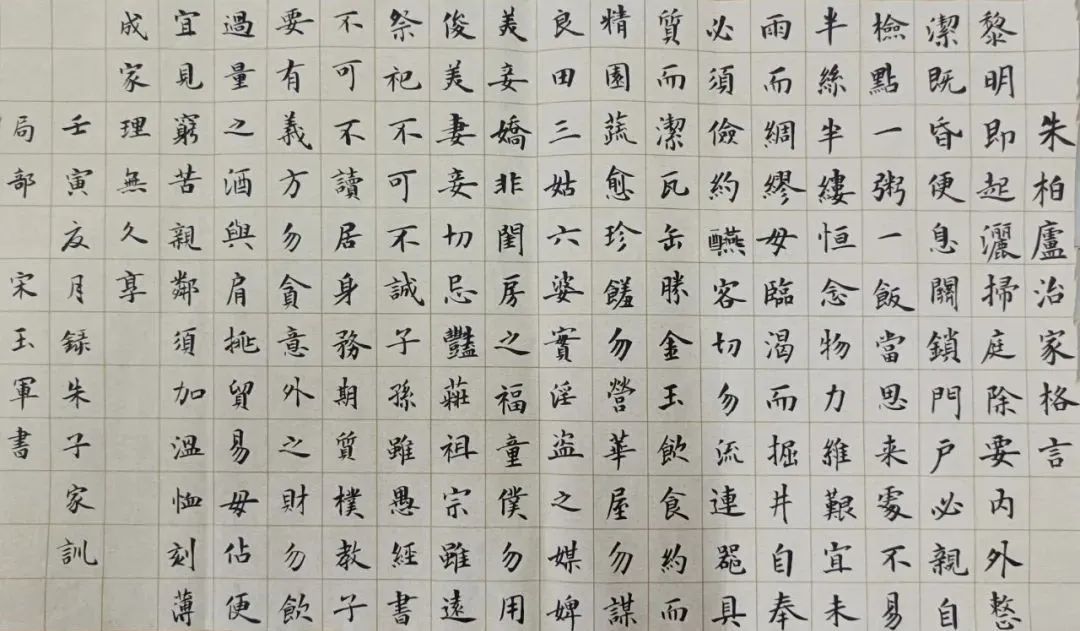 朱柏廬治家格言
黎明即起灑掃庭除要内外整
潔既昏便息關鎖門户必親自
檢點一粥一飯當思来處不易
半絲半縷恒念物力維艱宜未
雨而綢繆毋臨渴而掘井自奉
必須儉約醼容切勿流連器具
質而潔瓦缶勝金玉飲食約而
精園蔬愈珍饈勿營華屋勿謀
良田三姑六婆實淫盗之媒婢
美妾嬌非閨房之福童僕勿用
俊美妻妾切忌豔莊祖宗雖遠
祭祀不可不誠子孫雖愚經書
不可不讀居身務期質樸教子
要有義方勿貪意外之財勿飲
過量之酒與肩挑貿易毋佔便
宜見窮苦親鄰須加溫恤刻薄
成家理無久享
壬寅友月録朱子家訓
局部宋玉軍書